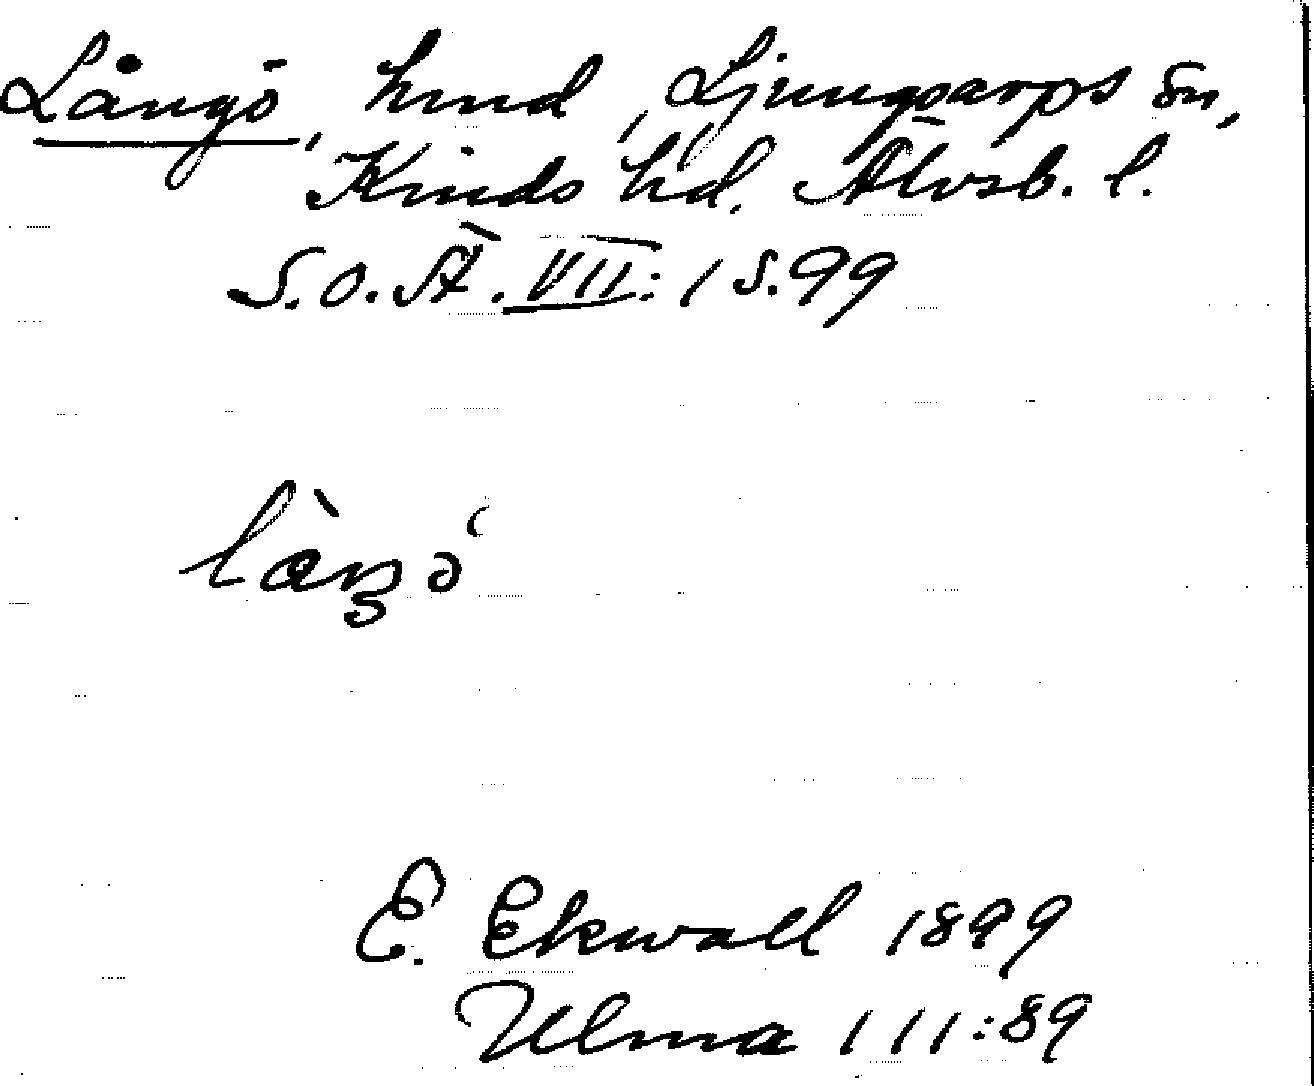 Långö, hmd, Ljungsarps sn,
Kinds hd. Älvsb. l.
S.O.Ä. VII: 1 s. 99
E. Ekwall 1899
Ulma 111:89